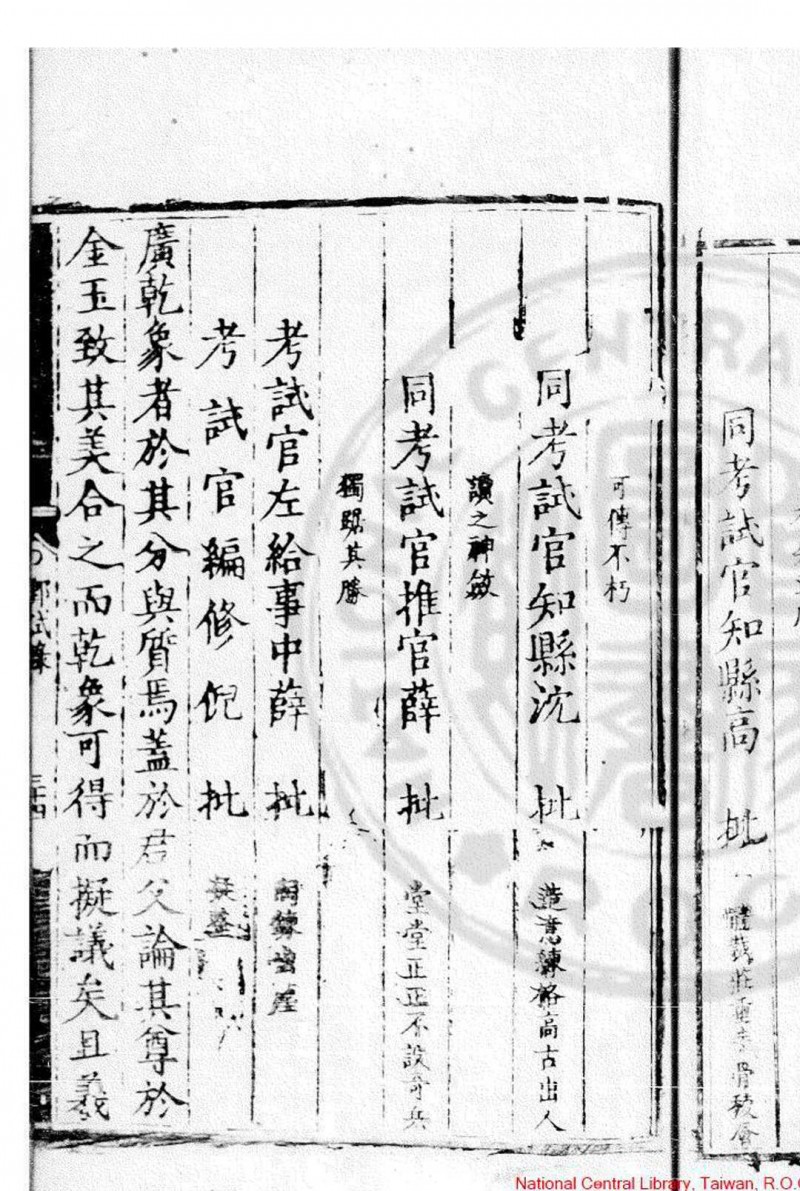 同考試官知縣高　批　體裁莊重
可傳不朽
同考試官知縣沈　批　造意鍊格高古出人
讀之神斂
同考試官推官薛　批　堂堂正正不設奇兵
獨踞其勝
考試官左給事中薛　批
考試官編修倪　批
廣乾象者於其分與質焉蓋於君父論其尊於
金玉致其美合之而乾象可得而擬議矣且義
試錄
三十四
National Central Library, Taiwan, R.O.C